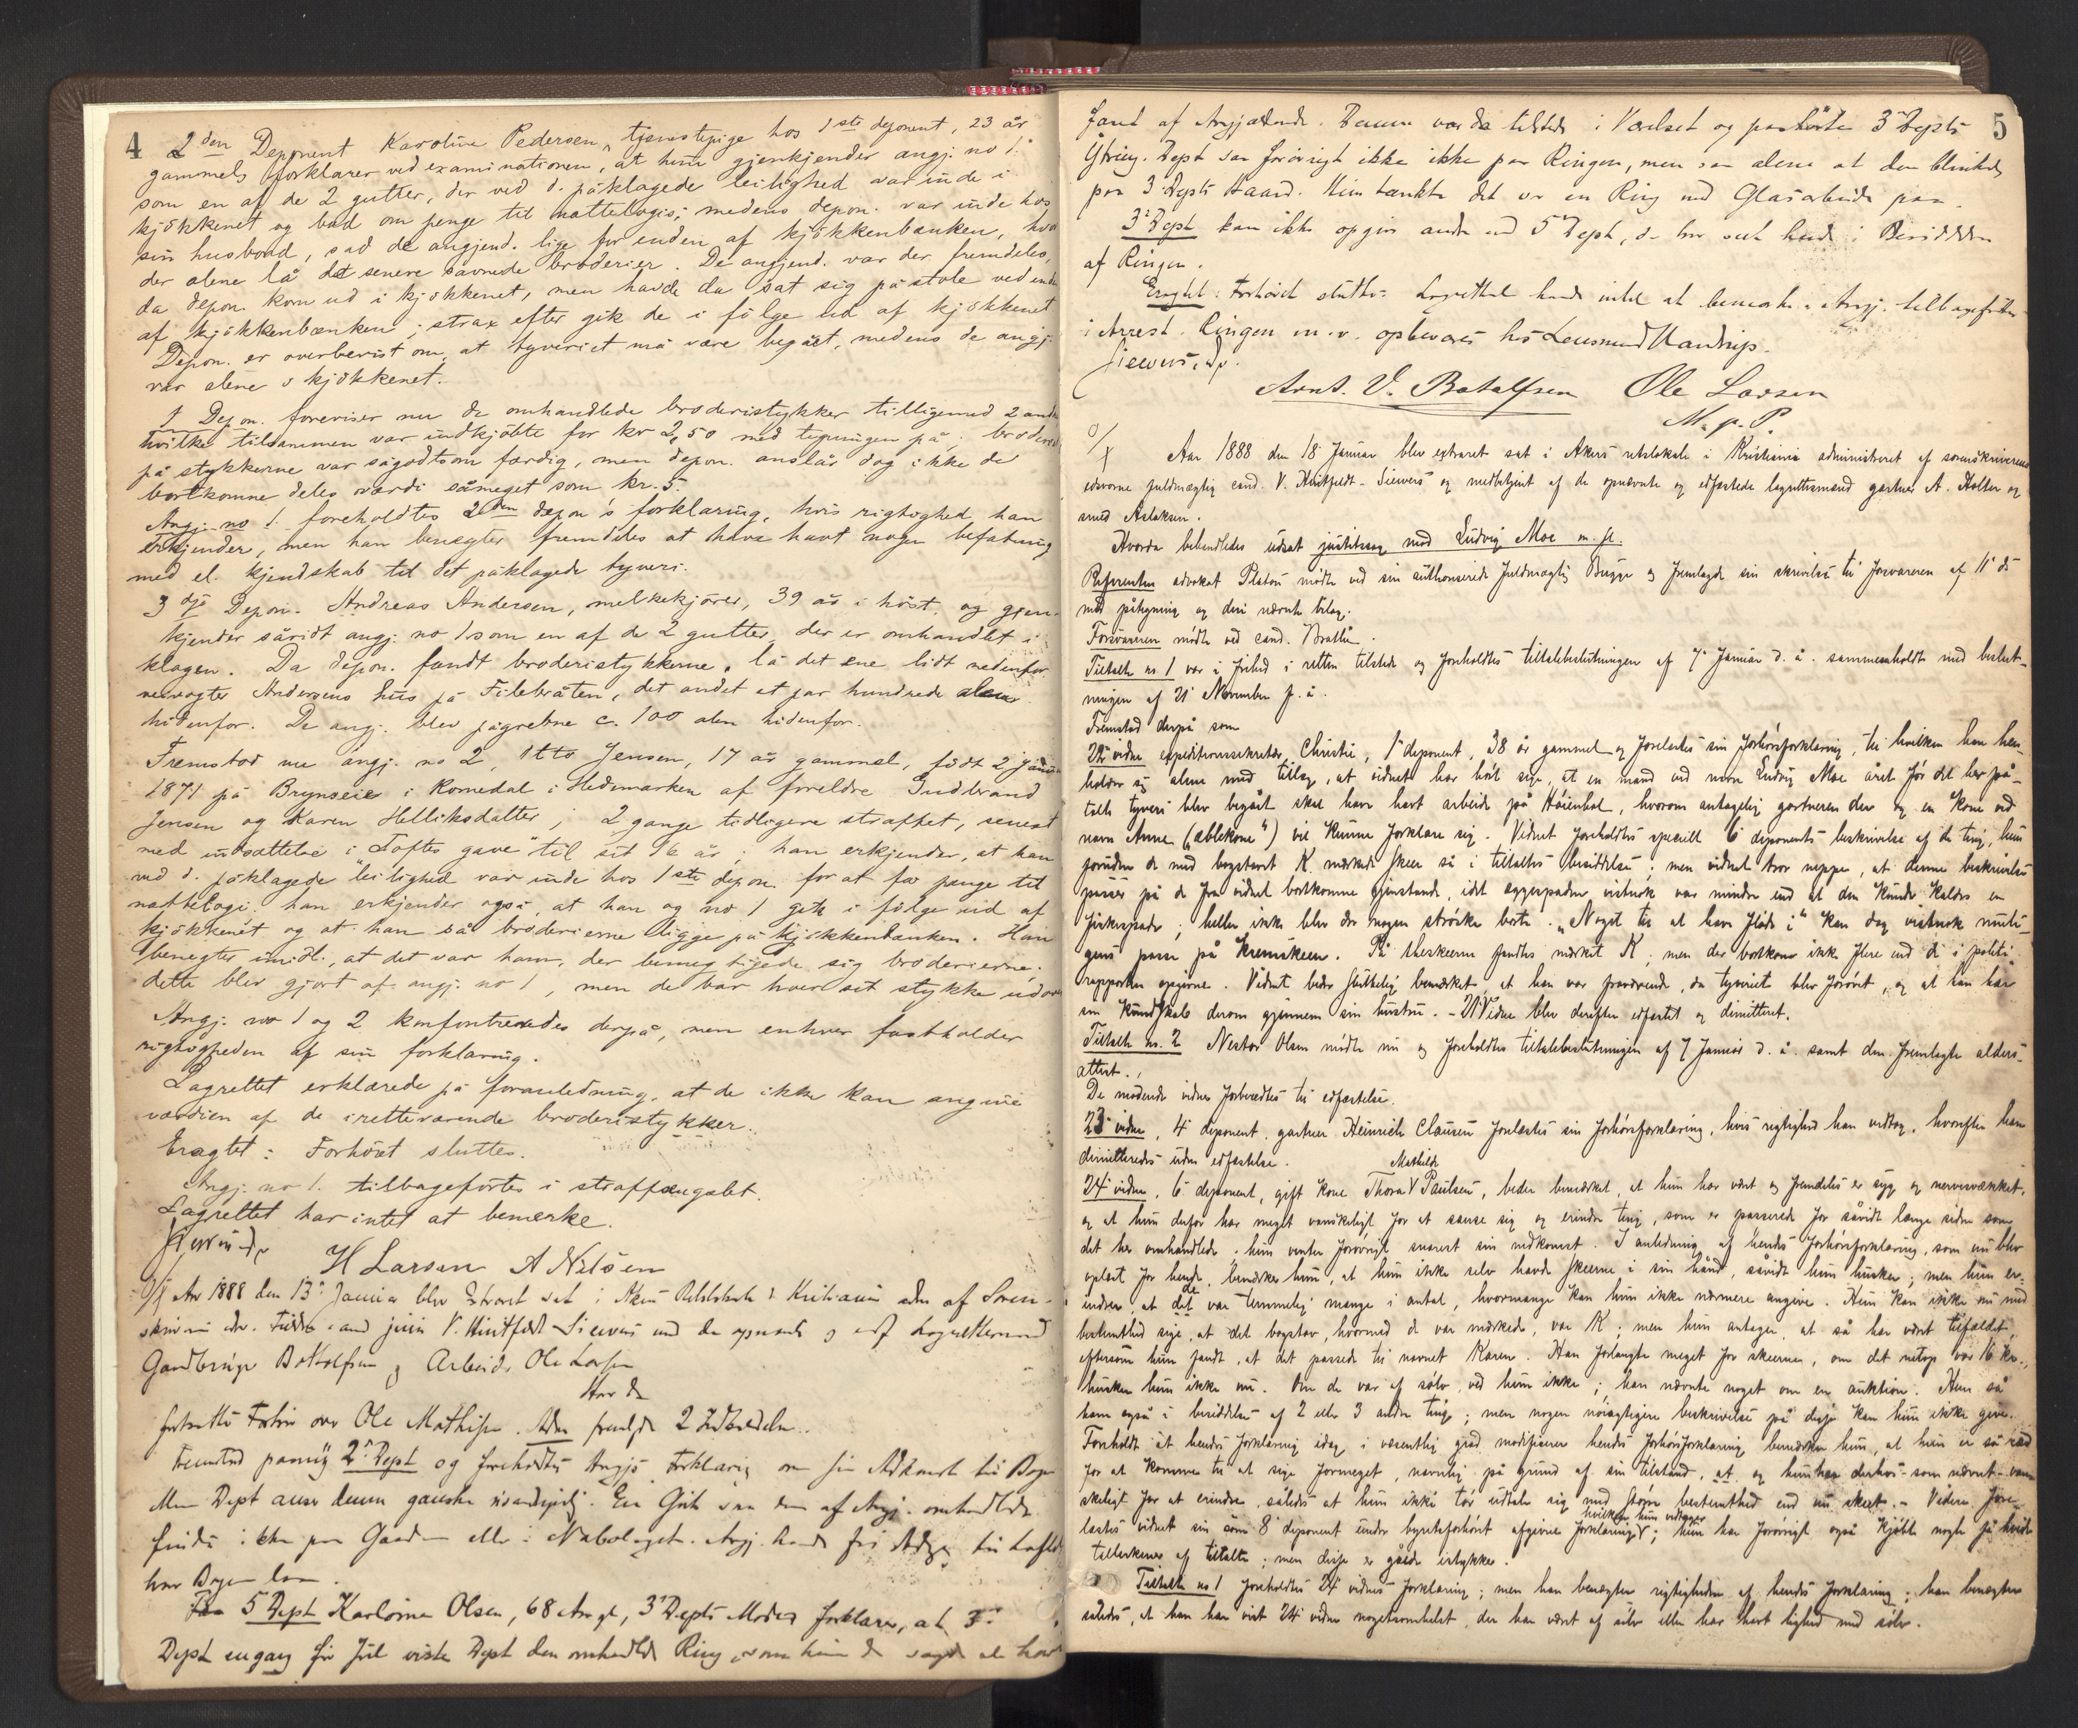 4
2den Deponent Karoline Pedersen, tjenestepige hos 1ste deponent, 23 år
gammel, forklarer ved examinationen, at hun gjenkjender angj. no 1
som en af de 2 gutter, der ved d. påklagede leilighed var inde i
kjökkenet og bad om penge til nattelogis; medens depon. var inde hos
sin husbond, sad de angjend. lige for enden af kjökkenbænken, hvor
der alene lå det senere savnede broderier. De angjend. var der fremdeles,
da depon. kom ud i kjökkenet, men havde da sat sig på stole ved enden
af kjökkenbænken; strax efter gik de i fölge ud af kjökkenet
Depon. er overbevist om, at tyveriet må være begået, medens de angj.
var alene i kjökkenet.
1 Depon. foreviser nu de omhandlede broderistykker tilligemed 2 andre
hvilke tilsammen var indkjöbte for kr 2,50 med tegningen på; broderiet
på stykkerne var sågodtsom færdig, men depon. anslår dog ikke de
bortkomne deles værdi såmeget som kr. 5.
Angj. no 1. foreholdtes 2den depon's forklaring, hvis rigtighed han
erkjender, men han benægter fremdeles at have havt nogen befatning
med el. kjendskab til det påklagede tyveri.
3dje Depon. Andreas Andersen, melkekjörer, 39 år i höst, og gjen-
kjender såvidt angj. no 1 som en af de 2 gutter, der er omhandlet i
klagen. Da depon. fandt broderistykkerne, lå det ene lidt nedenfor
Andersens hus på Filebråten, det andet et par hundrede alen
hidenfor. De angj. blev pågrebne c. 100 alen hidenfor.
Fremstod nu angj. no 2, Otto Jensen, 17 år gammel, födt 2 januar
1871 på Brynseie i Romedal i Hedemarken af foreldre Gudbrand
Jensen og Karen Helliksdatter; 2 gange tidligere straffet, senest
med indsættelse i "Toftes gave" til sit 16 år; han erkjender, at han
ved d. påklagede leilighed var inde hos 1ste depon. for at få penge til
nattelogi. han erkjender også, at han og no 1 gik i fölge ud af
kjökkenet og at han så broderierne ligge på kjökkenbænken. Han
benegter imidl., at det var ham, der bemægtigede sig broderierne.
dette blev gjort af angj. no 1, men de bar hver sit stykke udover
Angj. no 1 og 2 konfonteredes derpå, men enhver fastholder
rigtigheden af sin forklaring.
Lagrettet erklærede på foranledning, at de ikke kan angive
værdien af de iretteværende broderistykker.
Eragtet: Forhöret sluttes.
Angj. no 1. tilbageförtes i straffængslet.
Lagrettet har intet at bemerke.
H Larsen A Nilsen
Aar 1888 den 13de Januar blev Extraret sat i Akers Retslokale i Kristiania adm af Soren-
skriveren edsv. Fuldm. cand juris V. Huitfeldt Sievers med de opnævnte og edf Lagrettemænd
Gaardbruger Botolfsen og Arbeider Ole Larsen
Hvor da
fortsattes Forhör over Ole Mathisen. Adm fremlagde 2 Indkaldelser.
Fremstod paany 2den Dept og foreholdtes Angjs Forklaring om sin Adkomst til Bogen
Men Dept anser denne ganske usandsynlig.
finde i
har Bogen
5 Dept Karoline Olsen, 68 Aar gl, 3' Depts Moder forklarer, at 3'
Dept engang för Jul viste Dept den omhandlede Ring, som hun da sagde at have
5
faaet af Angjældende. Denne var da tilstede i Værelset og paahörte 3' Depts
Ytring. Dept saa forövrigt ikke ikke paa Ringen, men saa alene at den blinkede
paa 3' Depts Haand. Hun tænkte det var en Ring med Glasarbeide paa.
3' Dept kan ikke opgive andre end 5' Dept, der har seet hende i Besiddelse
af Ringen.
Eragtet: Forhöret sluttes. Lagrettet havde intet at bemærke. Angj. tilbageförtes
i Arrest. Ringen m. v. opbevares hos Lensmand Handrup.
Sievers, Dp.
Arnt. V. Botolfsen Ole Larsen
M. p. P.
Aar 1888 den 18 Januar blev extraret sat i Akers retslokale i Kristiania administreret af sorenskriverens
edsvorne fuldmægtig cand. V. Huitfeldt-Sievers og medbetjent af de opnævnte og edfæstede lagrettesmænd gartner A. Holter og
smed Aslaksen.
Hvorda behandledes udsat justitssag mod Ludvig Moe m. fl.
Referenten advokat Platou mödte ved sin authoriserede fuldmægtig Bugge og fremlagde sin skrivelse til forsvareren af 11' ds
med påtegning og deri nævnte bilag.
Forsvareren mödte ved cand. Bratlie.
Tiltalte no. 1 var i frihed i retten tilstede og foreholdtes tiltalebeslutningen af 7' Januar d. å. sammenholdt med beslut-
ningen af 21' November f. å.
Fremstod derpå som
22' vidne expeditionssekretær Christie, 1' deponent, 38 år gammel og forelæstes sin forhörsforklaring, til hvilken han hen-
holder sig alene med tillæg, at vidnet har hört sige, at en mand ved navn Ludvig Moe året för det her på-
talte tyveri blev begået skal have havt arbeide på Höienhal, hvorom antagelig gartneren der og en kone ved
navn Anne ("æblekone") vil kunne forklare sig. Vidnet foreholdtes specielt 6' deponents beskrivelse af de ting, hun
foruden de med bogstavet K mærkede skeer så i tiltaltes besiddelse; men vidnet tror neppe, at denne beskrivelse
passer på de fra vidnet bortkomne gjenstande, idet æggespaden vistnok var mindre end at den kunde kaldes en
fiskespade; heller ikke blev der nogen bort. "Noget til at have flöde i" kan dog vistnok muli-
gens passe på kremskeen. På theskeerne fandtes mærket K; men der bortkom ikke flere end de i politi-
rapporten opgivne. Vidnet beder sluttelig bemærket, at han var fraværende, da tyveriet blev forövet, og at han har
sin kundskab derom gjennem sin hustru. - 21' Vidne blev derefter edfæstet og dimitteret.
Tiltalte no. 2 Nestor Olsen mödte nu og foreholdtes tiltalebeslutningen af 7 Januar d. å. samt den fremlagte alders-
attest.
De mödende vidner forberedtes til edfæstelse.
23' vidne, 4' deponent, gartner Heinrich Clausen forelæstes sin forhörsforklaring, hvis rigtighed han vedtog, hvorefter han
dimitteredes uden edfæstelse.
Mathilde
24' vidne, 6' deponent, gift kone Thora V Paulsen, beder bemærket, at hun har vært og fremdeles er syg og nervesvækket,
og at hun derfor har meget vanskeligt for at sanse sig og erindre ting, som er passerede for såvidt længe siden som
det her omhandlede; hun venter forövrigt snarest sin nedkomst. I anledning af hendes forhörsforklaring, som nu blev
oplæst for hende, bemærker hun, at hun ikke selv havde skeerne i sin hånd, såvidt hun husker; men hun er-
indrer, at de var temmelig mange i antal, hvormange kan hun ikke nærmere angive. Hun kan ikke nu med
bestemthed sige, at det bogstav, hvormed de var mærkede, var K; men hun antager, at så har vært tilfældet,
eftersom hun fandt, at det passede til navnet Karen. Han forlangte meget for skeerne, om det netop var 16 kr.,
husker hun ikke nu. Om de var af sölv, ved hun ikke; han nævnte noget om en auktion. Hun så
ham også i besiddelse af 2 eller 3 andre ting; men nogen nöiagtigere beskrivelse på disse kan hun ikke give.
Foreholdt at hendes forklaring idag i væsentlig grad modificerer hendes forhörsforklaring bemærker hun, at hun er så ræd
for at komme til at sige formeget, navnlig på grund af sin tilstand, og hun har derhos - som nævnt - van-
skeligt for at erindre, således at hun ikke tör udtale sig med större bestemthed end nu skeet. - Videre fore-
hvilken hun vedtager
læstes vidnet sin som 8' deponent under byretsforhöret afgivne forklaring V; hun har forövrigt også kjöbt nogle få hvide
tallerkener af tiltalte; men disse er gåede istykker.
Tiltalte no 1 foreholdtes 24' vidnes forklaring; men han benægter rigtigheden af hendes forklaring; han benægter
således, at han har vist 24' vidne nogetsomhelst, der har vært af sölv eller har havt lighed med sölv.